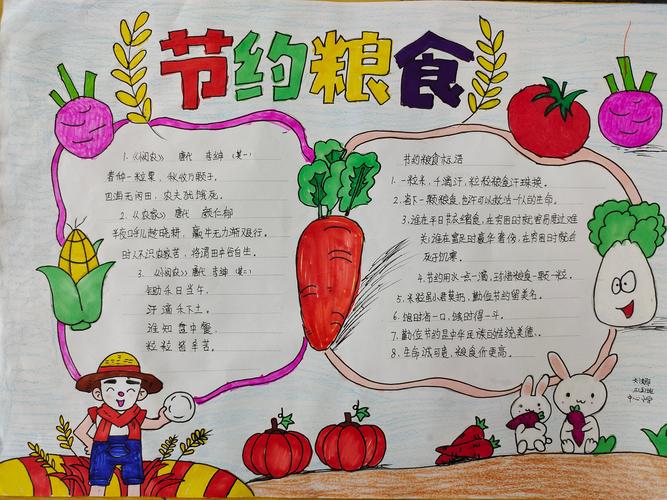 节约粮食
1.《悯农》 唐代 李绅 (其一)
春种一粒粟,秋收万颗子。
四海无闲田,农夫犹饿死。
2.《农家》 唐代 颜仁郁
半夜呼儿趁晓耕,羸牛无力渐艰行。
时人不识农家苦,将谓田中谷自生。
3.《悯农》 唐代 李绅 (其二)
锄禾日当午,
汗滴禾下土。
谁知盘中餐,
粒粒皆辛苦。
节约粮食标语
1.一粒米,千滴汗,粒粒粮食汗珠换。
2.省下一颗粮食,也许可以救活一个人的生命。
3.谁在平日节衣缩食,在穷困时就容易度过难
关;谁在富足时豪华奢侈,在穷困时就会
死于饥寒。
4.节约用水一点一滴,珍惜粮食一颗一粒。
5.米粒虽小君莫扔,勤俭节约留美名。
6.饱时省一口,饿时得一斗。
7.勤俭节约是中华民族的传统美德。
8.生命诚可贵,粮食价更高。
中心小学